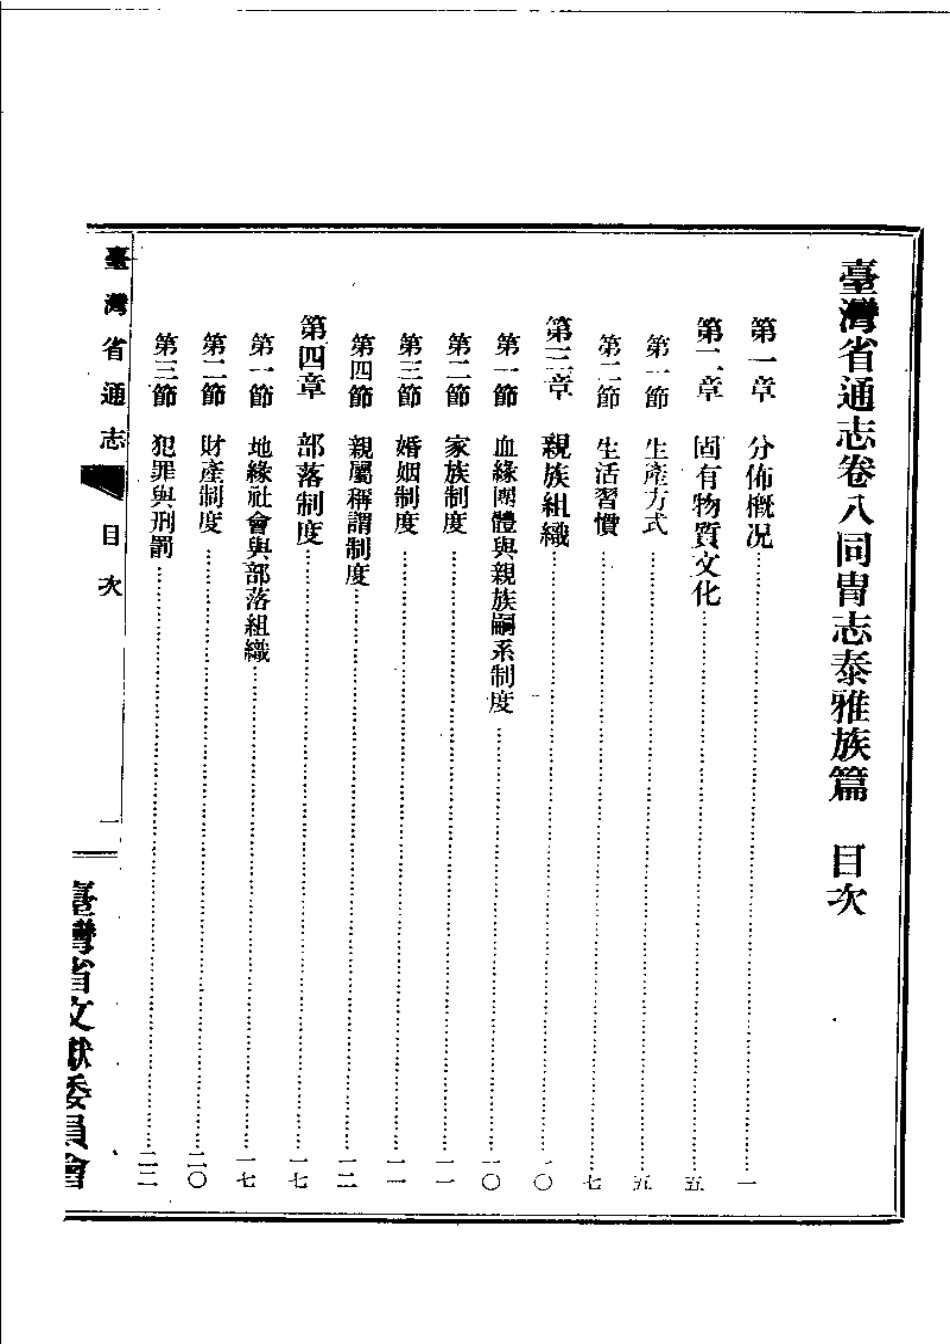 臺灣省通志卷八同冑志泰雅族篇　目次
第一章　分佈概況…………一
第二章　固有物質文化…………五
第一節　生產方式…………五
第二節　生活習慣…………七
第三章　親族組織…………一〇
第一節　血緣團體與親族嗣系制度…………一〇
第二節　家族制度…………一一
第三節　婚姻制度…………一一
第四節　親屬稱謂制度…………一二
第四章　部落制度…………一七
第一節　地緣社會與部落組織…………一七
第二節　財產制度…………二〇
第三節　犯罪與刑罰…………二二
臺灣省通志　目次　一
臺灣省文獻委員會